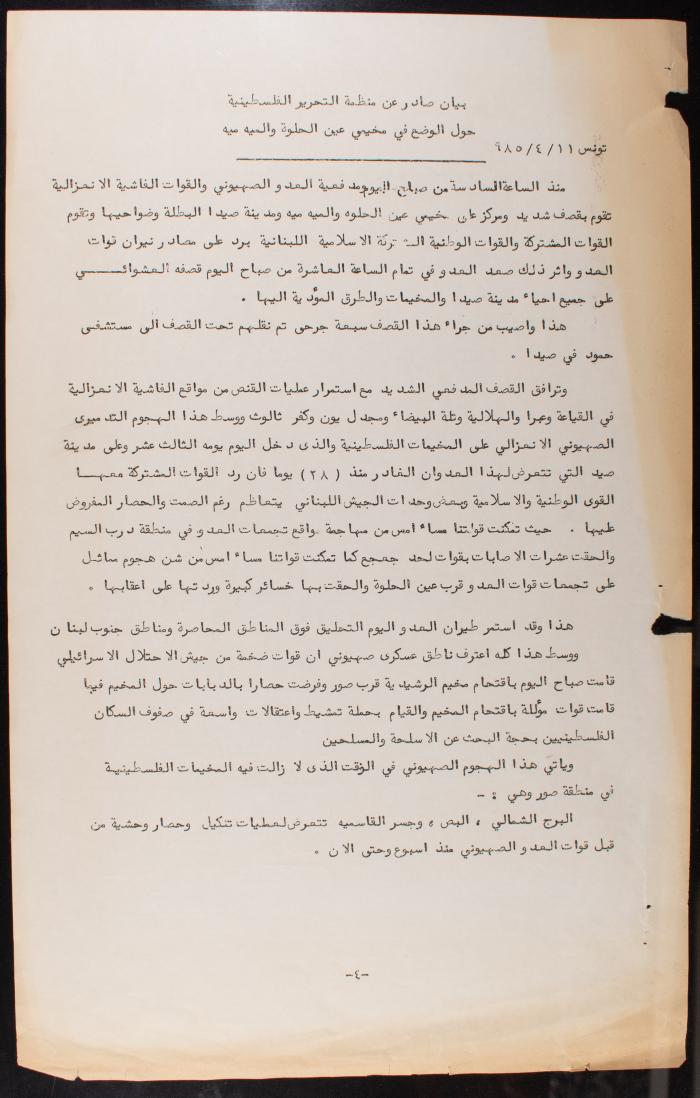 بيان صادر عن منظمة التحرير الفلسطينية
حول الوضع في مخيمي عين الحلوة والميه ميه
تونس ١١/٤/٩٨٥
منذ الساعة السادسة من صباح اليوم ومدفعية العدو الصهيوني والقوات الفاشية الانعزالية
تقوم بقصف شديد ومركز على مخيمي عين الحلوه والميه ميه ومدينة صيدا البطلة وضواحيها وتقوم
القوات المشتركة والقوات الوطنية المشتركة الاسلامية اللبنانية برد على مصادر نيران قوات
العدو واثر ذلك صعد العدو في تمام الساعة العاشرة من صباح اليوم قصفه العشوائي
على جميع احياء مدينة صيدا والمخيمات والطرق المؤدية اليها .
هذا واصيب من جراء هذا القصف سبعة جرحى تم نقلهم تحت القصف الى مستشفى
حمود في صيدا .
وترافق القصف المدفعي الشديد مع استمرار عمليات القنص من مواقع الفاشية الانعزالية
في القياعة وعبرا والهلالية وتلة البيضاء ومجدل يون وكفر ثالوث ووسط هذا الهجوم التدميرى
الصهيوني الانعزالي على المخيمات الفلسطينية والذى دخل اليوم يومه الثالث عشر وعلى مدينة
صيد التي تتعرض لهذا العدوان الغادر منذ ( ٢٨ ) يوما فان رد القوات المشتركة معها
القوى الوطنية والاسلامية وبعض وحدات الجيش اللبناني يتعاظم رغم الصمت والحصار المفروض
عليها . حيث تمكنت قواتنا مساء امس من مهاجمة مواقع تجمعات العدو في منطقة درب السيم
والحقت عشرات الاصابات بقوات لحد جعجع كما تمكنت قواتنا مساء امس من شن هجوم مماثل
على تجمعات قوات العدو قرب عين الحلوة والحقت بها خسائر كبيرة وردتها على اعقابها .
هذا وقد استمر طيران العدو اليوم التحليق فوق المناطق المحاصرة ومناطق جنوب لبنان
ووسط هذا كله اعترف ناطق عسكرى صهيوني ان قوات ضخمة من جيش الاحتلال الاسرائيلي
قامت صباح اليوم باقتحام مخيم الرشيدية قرب صور وفرضت حصارا بالدبابات حول المخيم فيما
قامت قوات مؤللة باقتحام المخيم والقيام بحملة تمشيط واعتقالات واسعة في صفوف السكان
الفلسطينيين بحجة البحث عن الاسلحة والمسلحين
وياتي هذا الهجوم الصهيوني في الوقت الذى لا زالت فيه المخيمات الفلسطينية
في منطقة صور وهي : -
البرج الشمالي ، البص ، وجسر القاسميه تتعرض لعمليات تنكيل وحصار وحشية من
قبل قوات العدو الصهيوني منذ اسبوع وحتى الان .
-٤-